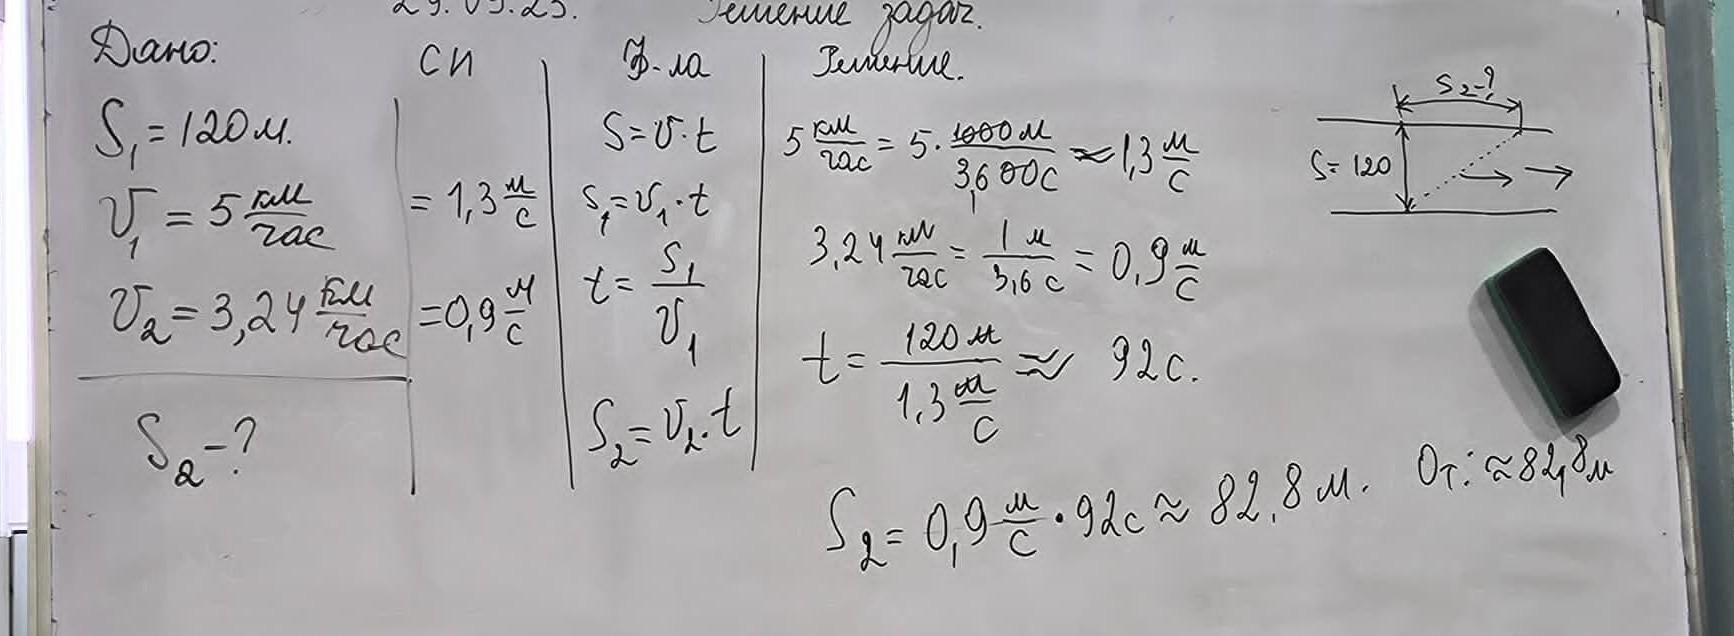 29.09.23. Решение задач.
Дано:
S₁ = 120 м.
V₁ = 5 км/час
V₂ = 3,24 км/час
S₂ - ?
СИ
= 1,3 м/с
= 0,9 м/с
Ф-ла
S = V · t
S₁ = V₁ · t
t = S₁/V₁
S₂ = V₂ · t
Решение.
5 км/час = 5 · 1000 м/3600 с ≈ 1,3 м/с
3,24 км/час = 1 м/3,6 с = 0,9 м/с
t = 120 м/1,3 м/с ≈ 92 с.
S₂ = 0,9 м/с · 92 с ≈ 82,8 м. От: ≈ 82,8 м
S₂ - ?
S = 120